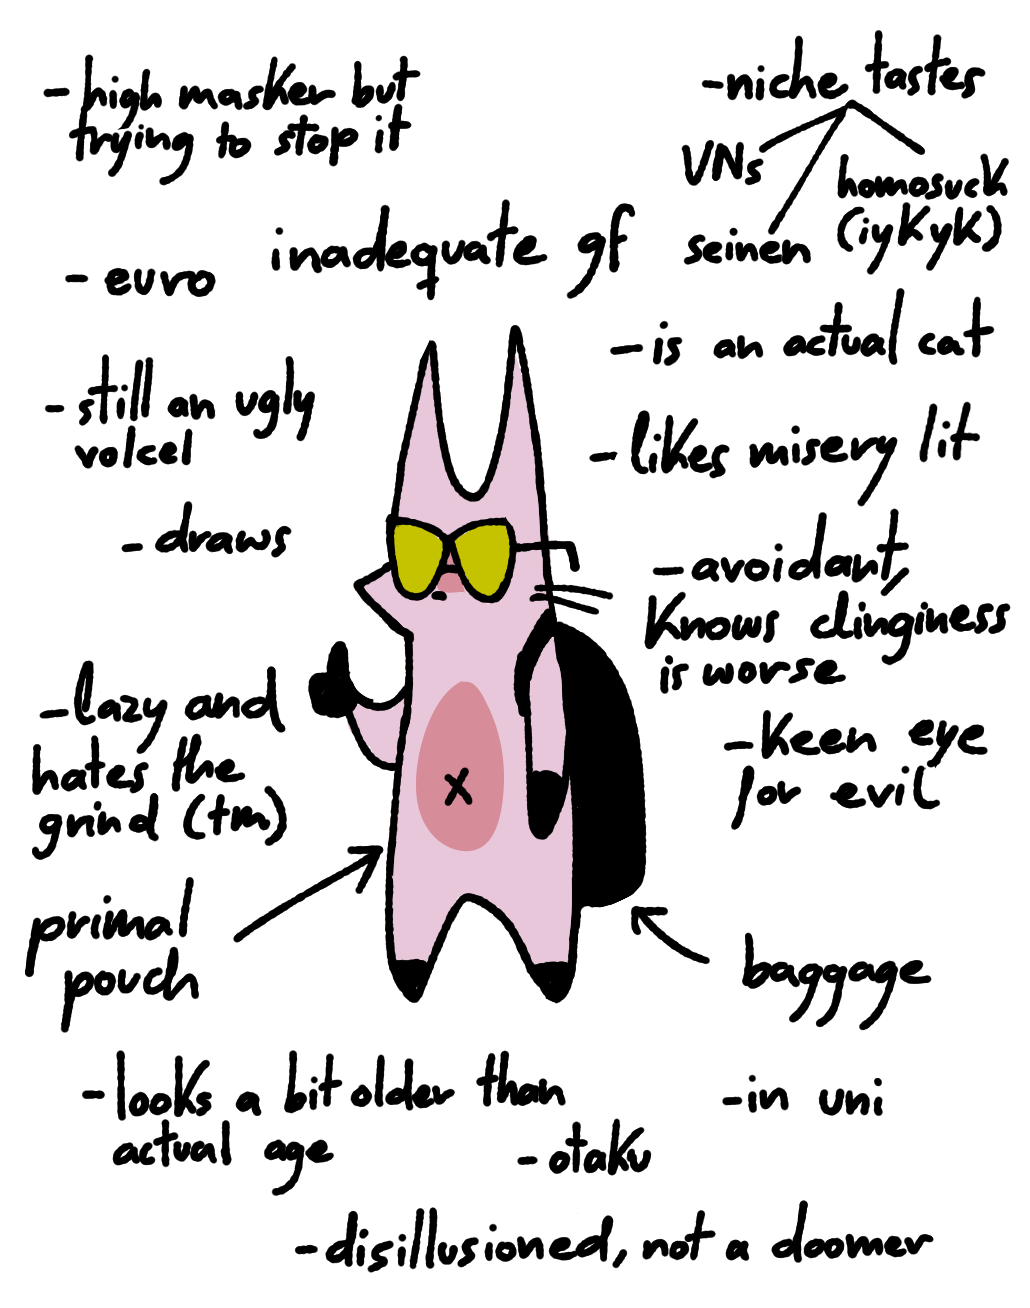 -high masker but
trying to stop it
-niche tastes
VNs
seinen
homosuck
(iykyk)
inadequate gf
-euro
-is an actual cat
-still an ugly
volcel
-likes misery lit
-draws
-avoidant,
knows clinginess
is worse
-lazy and
hates the
grind (tm)
-keen eye
for evil
primal
pouch
baggage
-looks a bit older than
actual age
-in uni
-otaku
-disillusioned, not a doomer